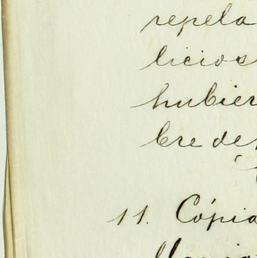 repela
licios
hubier
bre de
11. Cópia